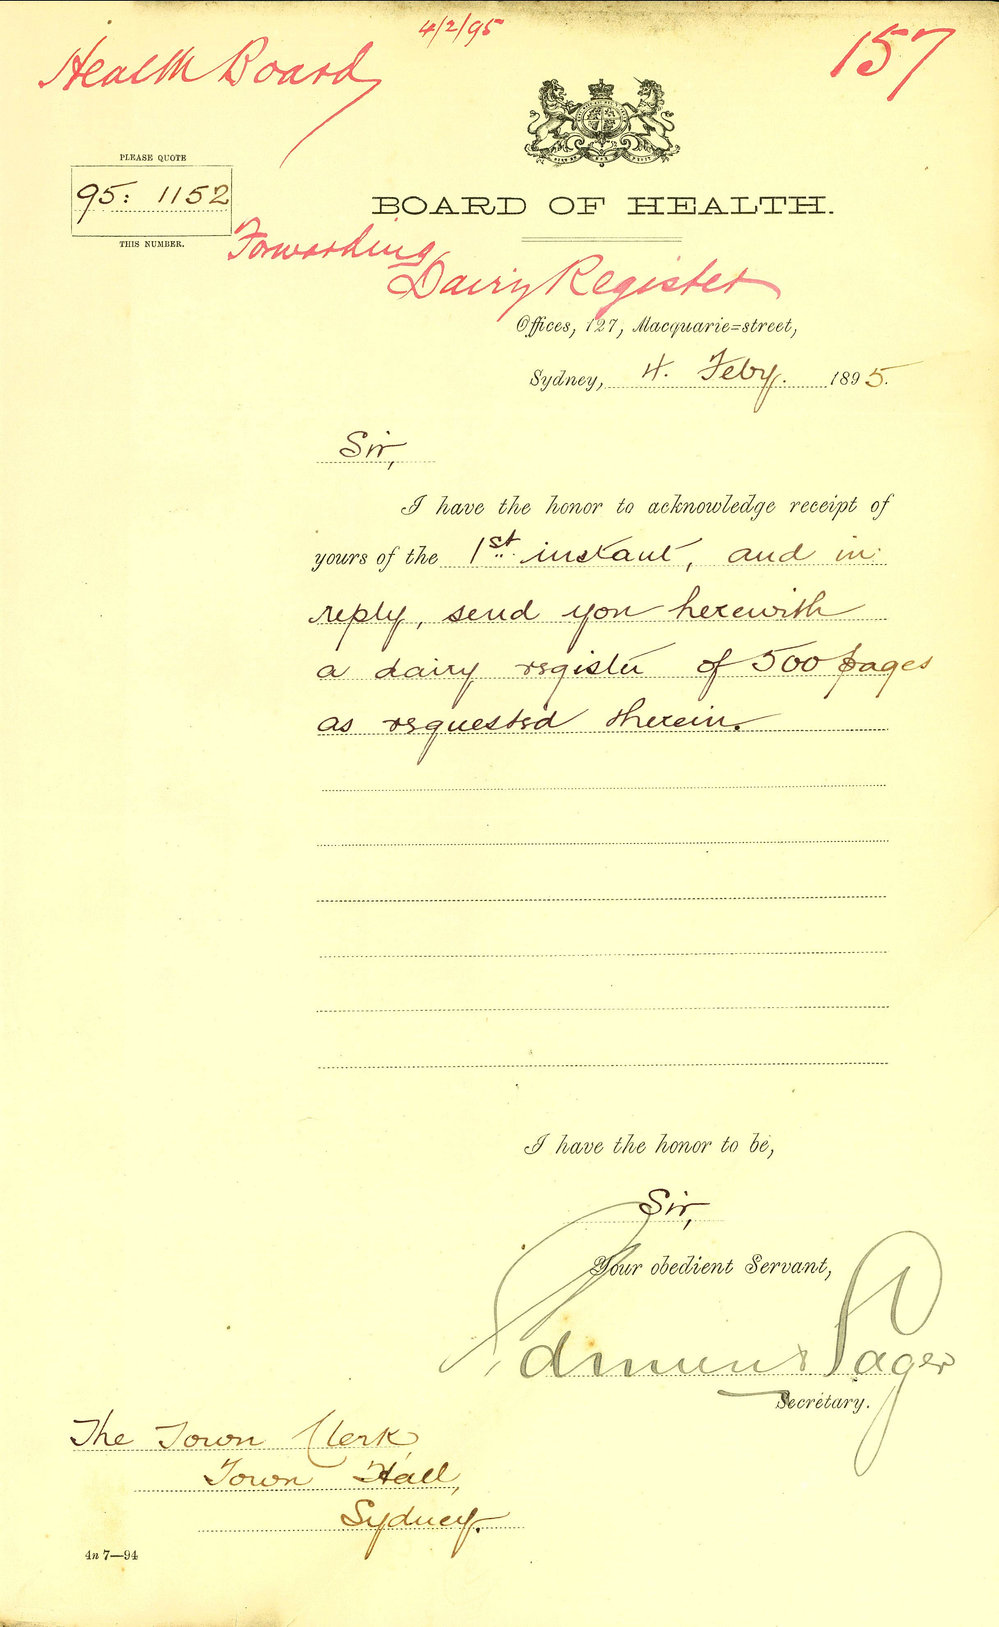 4/2/95
Health Board
157
PLEASE QUOTE
95: 1152
THIS NUMBER.
BOARD OF HEALTH.
Forwarding
Dairy Register
Offices, 127, Macquarie=street,
Sydney, 4. Feby. 1895.
Sir,
I have the honor to acknowledge receipt of
yours of the 1st instant, and in
reply, send you herewith
a dairy register of 500 pages
as requested therein.
I have the honor to be,
Sir,
Your obedient Servant,
Edmund Sager
Secretary.
The Town Clerk,
Town Hall,
Sydney.
4n 7—94